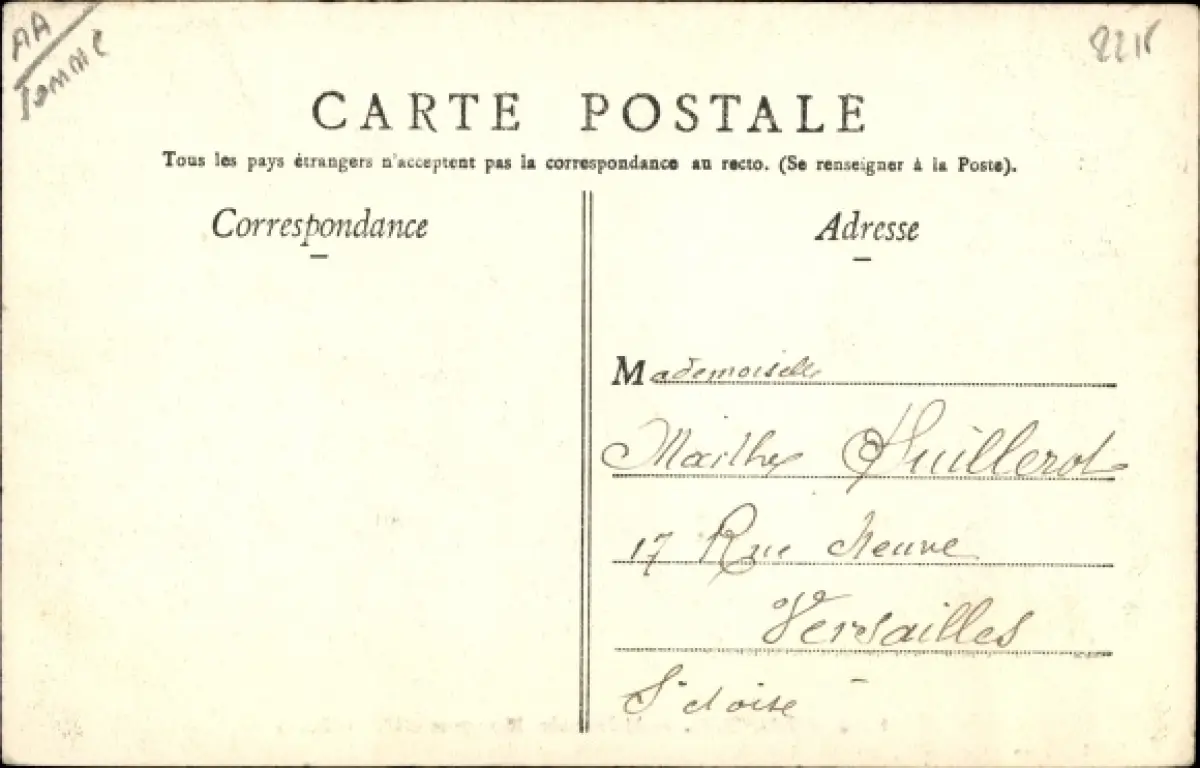 AA
Somme
CARTE POSTALE
Tous les pays étrangers n'acceptent pas la correspondance au recto. (Se renseigner à la Poste).
Correspondance
Adresse
Mademoiselle
Marthe Huillerot
17 Rue Neuve
Versailles
S et oise